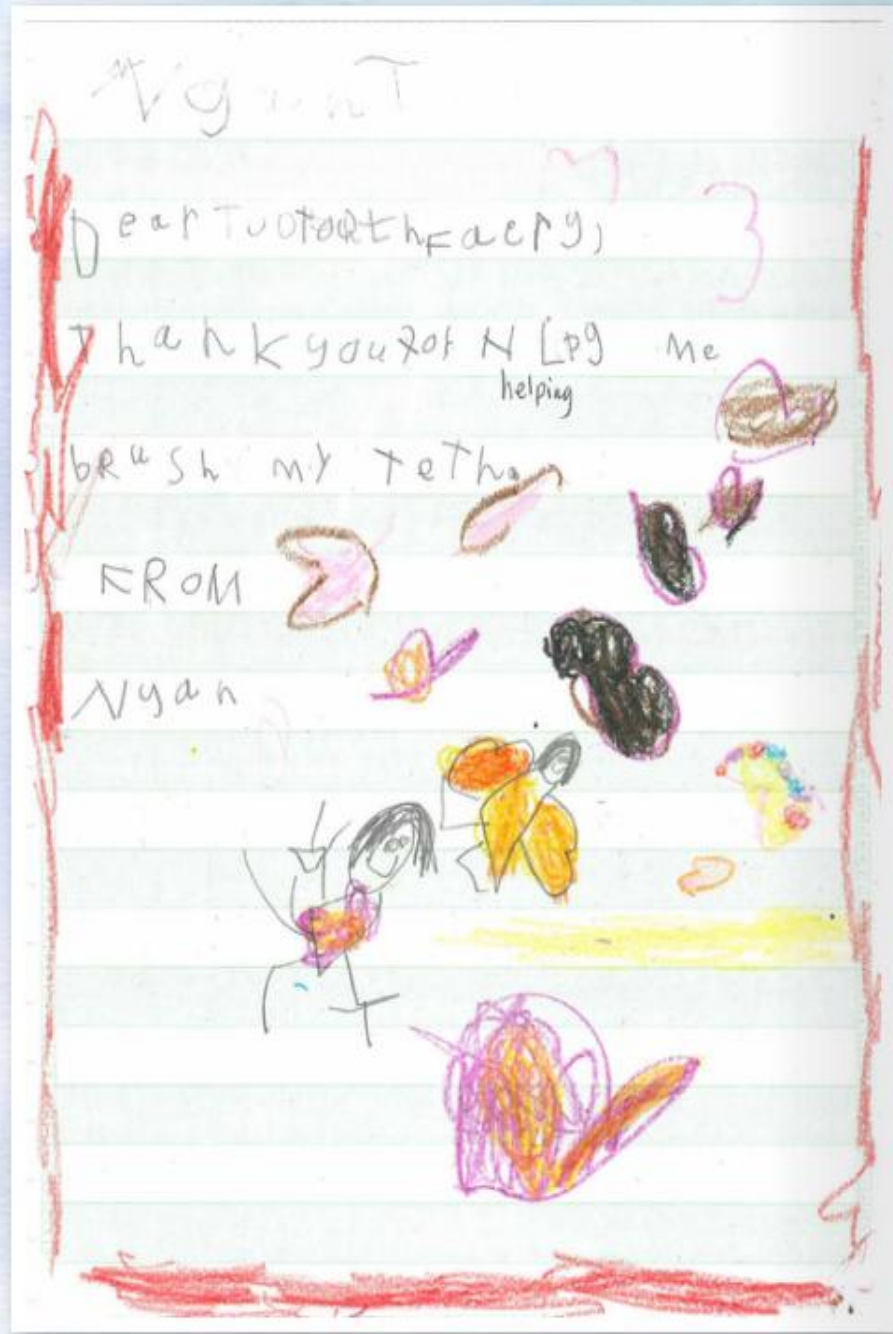 Dear TuoToothFaery,
Thank you for HLpg me
helping
bRuSh my TeTh.
FROM
Nyan